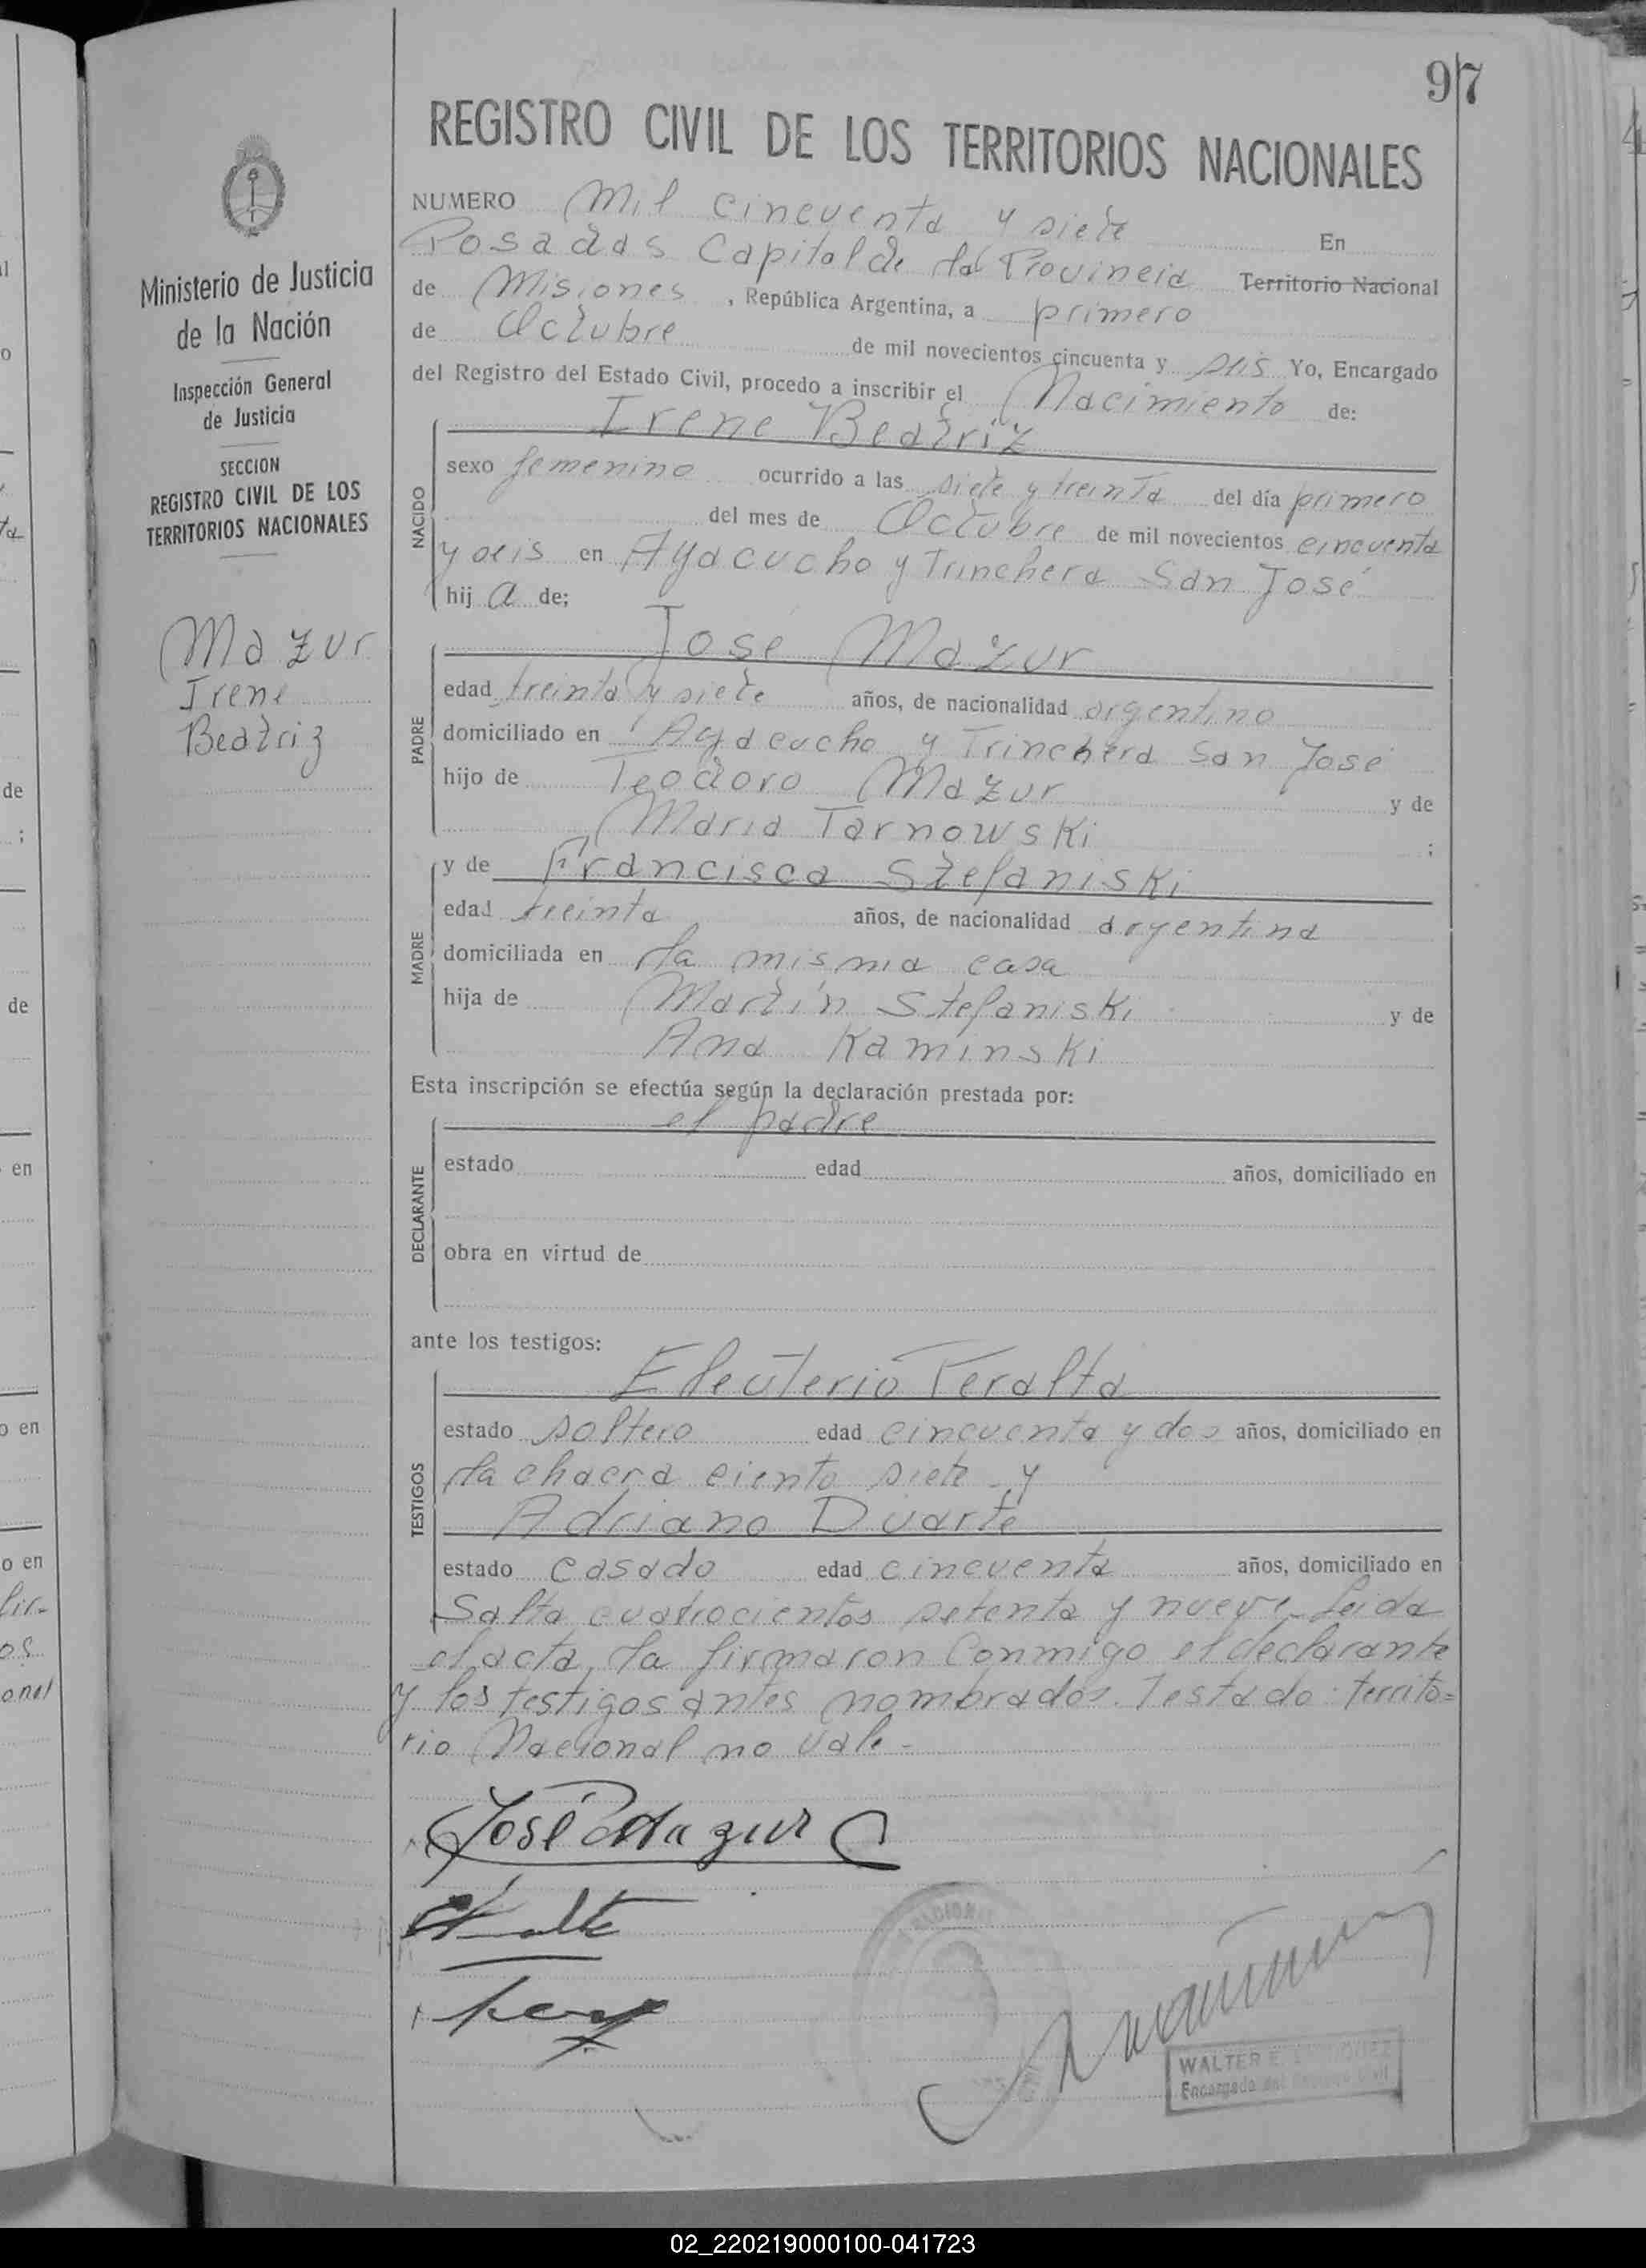 97
REGISTRO CIVIL DE LOS TERRITORIOS NACIONALES
NUMERO Mil cincuenta y siete En
Posadas Capital de la Provincia Territorio Nacional
de Misiones, República Argentina, a primero
de Octubre de mil novecientos cincuenta y seis Yo, Encargado
del Registro del Estado Civil, procedo a inscribir el Nacimiento de:
Irene Beatriz
sexo femenino ocurrido a las siete y treinta del día primero
del mes de Octubre de mil novecientos cincuenta
y seis en Ayacucho y Trinchera San José
hij a de;
NACIDO
José Mazur
edad treinta y siete años, de nacionalidad argentino
domiciliado en Ayacucho y Trinchera San José
hijo de Teodoro Mazur y de
Maria Tarnowski ;
PADRE
y de Francisca Stefaniski
edad treinta años, de nacionalidad argentina
domiciliada en la misma casa
hija de Martín Stefaniski y de
Ana Kaminski
MADRE
Esta inscripción se efectúa según la declaración prestada por:
el padre
estado edad años, domiciliado en
obra en virtud de
DECLARANTE
ante los testigos:
Eleuterio Peralta
estado soltero edad cincuenta y dos años, domiciliado en
la chacra ciento siete y
Adriano Duarte
estado casado edad cincuenta años, domiciliado en
Salta cuatrocientos setenta y nueve. Leida
TESTIGOS
el acta, la firmaron Conmigo el declarante
y los testigos antes nombrados. Testado: territo=
rio Nacional no vale-
José Mazur
WALTER E.
Encargado del Registro Civil
Ministerio de Justicia
de la Nación
Inspección General
de Justicia
SECCION
REGISTRO CIVIL DE LOS
TERRITORIOS NACIONALES
Mazur
Irene
Beatriz
02_220219000100-041723